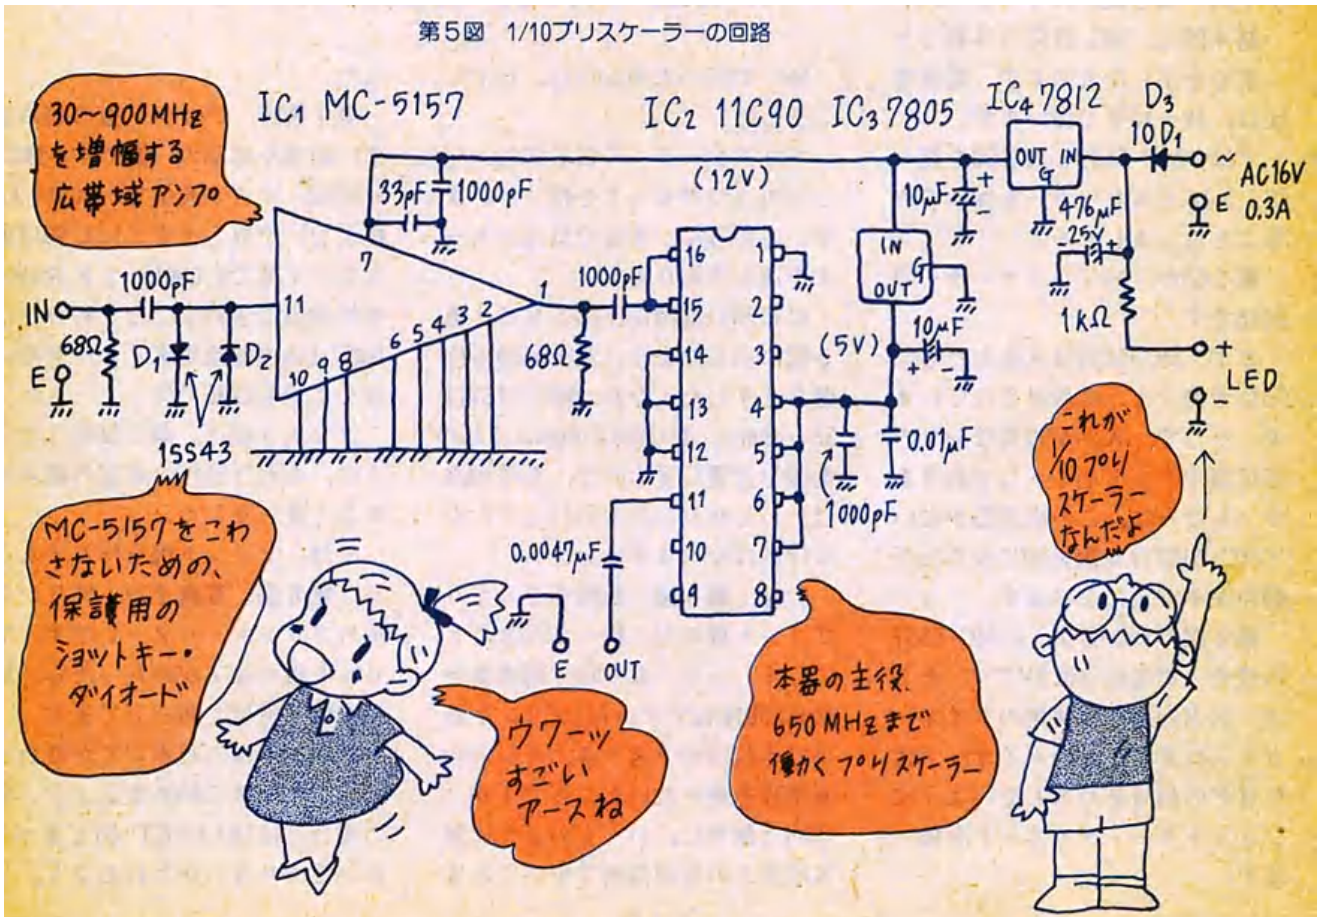 第5図 1/10プリスケーラーの回路
30～900MHz
を増幅する
広帯域アンプ
IC1 MC-5157
IC2 11C90
IC3 7805
IC4 7812
D3
10D1
OUT IN
G
～
E
AC16V
0.3A
33pF
1000pF
(12V)
10μF
+
-
476μF
-25V+
1kΩ
+
LED
-
IN
G
OUT
(5V)
10μF
+ -
0.01μF
1000pF
1000pF
IN
E
68Ω
D1
D2
1SS43
11
7
1
10 9 8 6 5 4 3 2
1000pF
68Ω
16
15
14
13
12
11
10
9
1
2
3
4
5
6
7
8
0.0047μF
E OUT
MC-5157をこわ
さないための、
保護用の
ショットキー・
ダイオード
ウワーッ
すごい
アースね
本器の主役、
650MHzまで
働くプリスケーラー
これが
1/10プリ
スケーラー
なんだよ